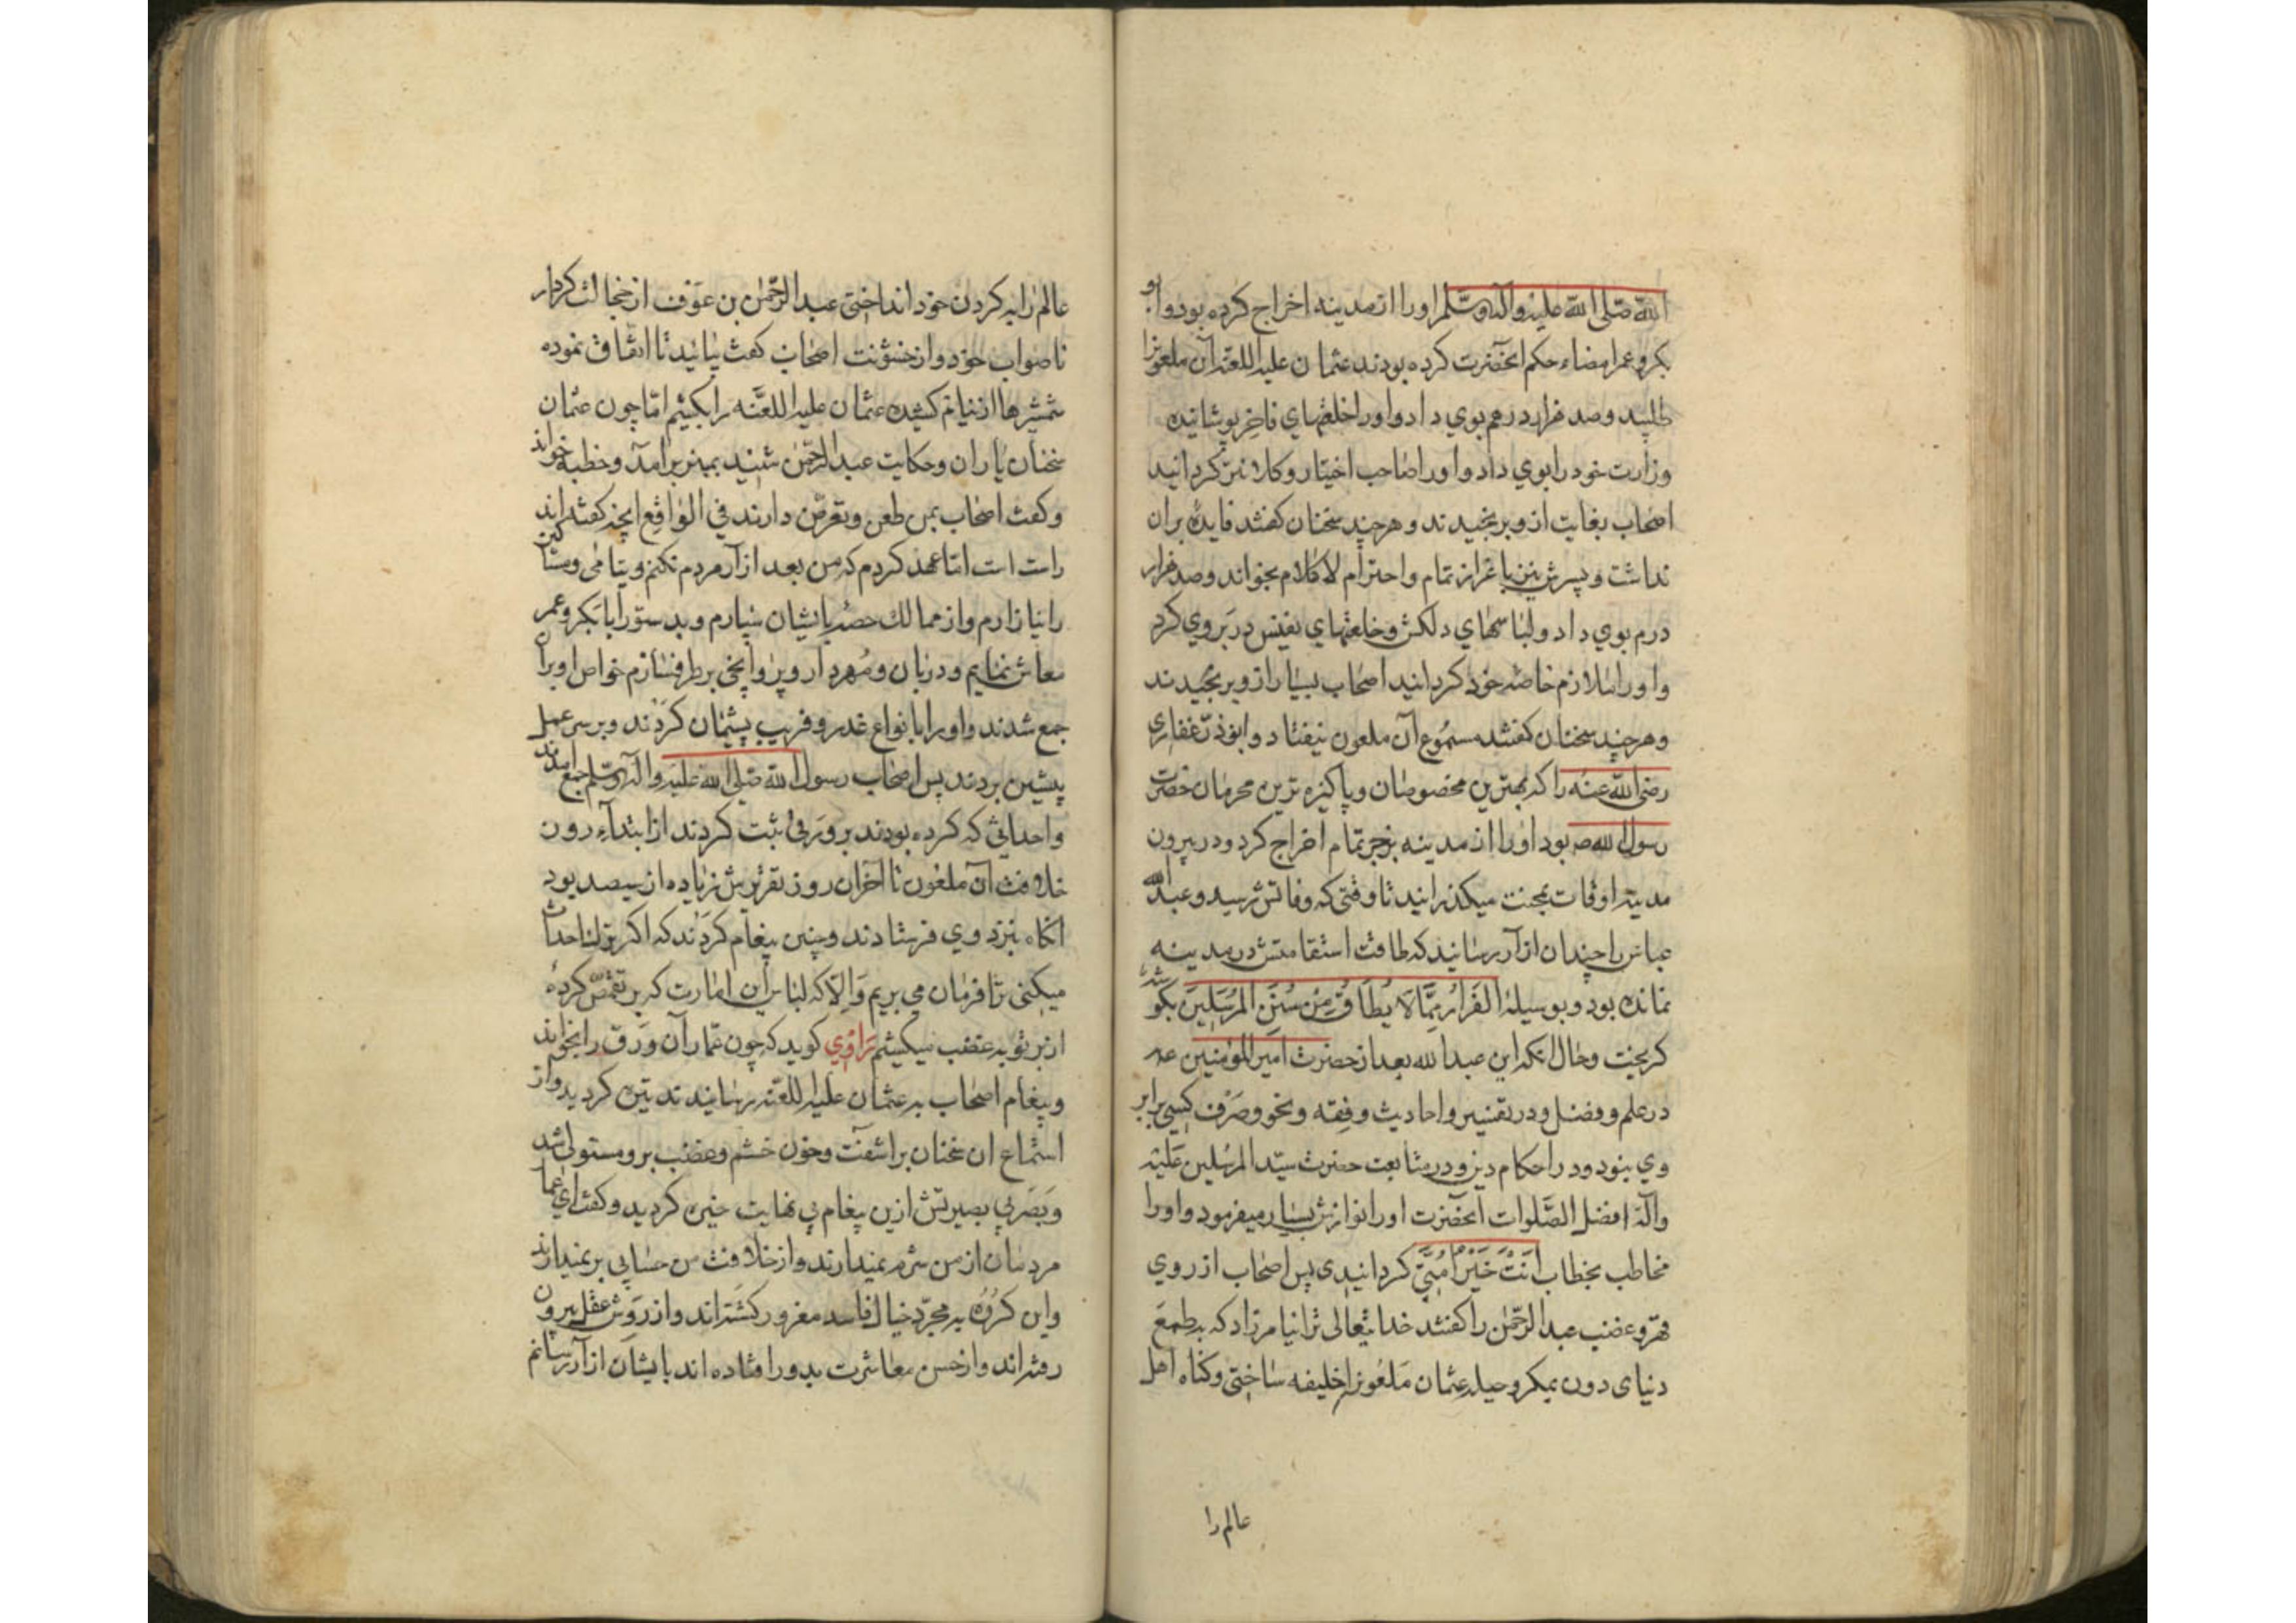 الله صلی الله علیه وآله وسلم اورا از مدینه اخراج کرده بود وابو
بکر وعمر امضاء حکم انحضرت کرده بودند عثمان علیه اللعنه آن ملعونرا
طلبید وصد هزار درهم بوی داد واورا خلعتهای فاخر پوشانیده
وزارت خود را بوی داد واورا صاحب اختیار وکارکن کردانید
اصحاب بغایت ازو برنجیدند وهر چند سخنان کفتند فایده بران
نداشت وپسرش نیز با عزاز تمام واحترام لاکلام بخواند وصد هزار
درم بوی داد ولباسهای دلکش وخلعتهای نفیس در بر وی کرد
واورا ملازم خاصه خود کردانید اصحاب بسیار ازو برنجیدند
وهر چند سخنان کفتند مسموع آن ملعون نیفتاد وابوذر غفاری
رضی الله عنه را که بهترین مخصوصان وپاکیزه ترین محرمان حضرت
رسول الله ص بود اورا از مدینه بزجر تمام اخراج کرد ودر بیرون
مدینه اوقات بمحنت میکذرانید تا وقتی که وفاتش رسید وعبد الله
عباس را چندان ازار رسانید که طاقت استقامتش در مدینه
نمانده بود وبوسیلۀ الفرار مما لا یطاق من سنن المرسلین بکو شد
کریخت وحال انکه این عبد الله بعد از حضرت امیر المؤمنین عم
در علم وفضل ودر تفسیر واحادیث وفقه ونحو وصرف کسی برابر
وی نبود ودر احکام دین ودر متابعت حضرت سید المرسلین علیه
وآله افضل الصلوات انحضرت اورا نوازش بسیار میفرمود واورا
مخاطب بخطاب انت خیر امتی کردانیدی پس اصحاب از روی
قهر وغضب عبد الرحمن را کفتند خدا یتعالی ترا نیامرزاد که بطمع
دنیای دون بمکر وحیله عثمان ملعونرا خلیفه ساختی وکناه اهل
عالم را
عالم را به کردن خود انداختی عبد الرحمن بن عوف از خجالت کردار
ناصواب خود واز خشونت اصحاب کفت بیائید تا اتفاق نموده
شمشیرها از نیام کشیده عثمان علیه اللعنه را بکشیم اما چون عثمان
سخنان یاران وحکایت عبد الرحمن شنید بمنبر برآمد وخطبه خواند
وکفت اصحاب بمن طعن وتعرض دارند فی الواقع انچه کفته اند
راست است اما عهد کردم که من بعد ازار مردم نکنم ویتامی ومساکین
را نیازارم واز ممالک حصه بایشان سپارم وبدستور ابابکر وعمر
معاش نمایم ودربان ومهردار وپروانچی برطرف سازم خواص او بران
جمع شدند واورا بانواع غدر وفریب پشیمان کردند وبر سر عمل
پیشین بردند پس اصحاب رسول الله صلی الله علیه وآله وسلم جمع آمدند
واحداثی که کرده بودند بر ورقی ثبت کردند از ابتداء دون
خلافت آن ملعون تا آخران روز تقریرش زیاده از سیصد بود
انکاه بنزد وی فرستادند وچنین پیغام کردند که اکر ترک احداث
میکنی ترا فرمان می بریم والا که لباس این امارت که بر تقمص کرده
از بر تو به عنف میکشیم راوی کوید که چون عمار آن ورق را بخواند
وپیغام اصحاب به عثمان علیه اللعنه رسانیدند تیره کردید واز
استماع ان سخنان براشفت وخون خشم وغضب برو مستولی شد
وبصر بی بصیرتش ازین پیغام بی نهایت خیره کردید وکفت ای عما
مردمان از من شرم نمیدارند واز خلافت من حسابی بر نمیدارند
واین کروه به مجرد خیال فاسد مغرور کشته اند واز روش عقل بیرون
رفته اند واز حسن معاشرت بدور افتاده اند بایشان ازار رسانم